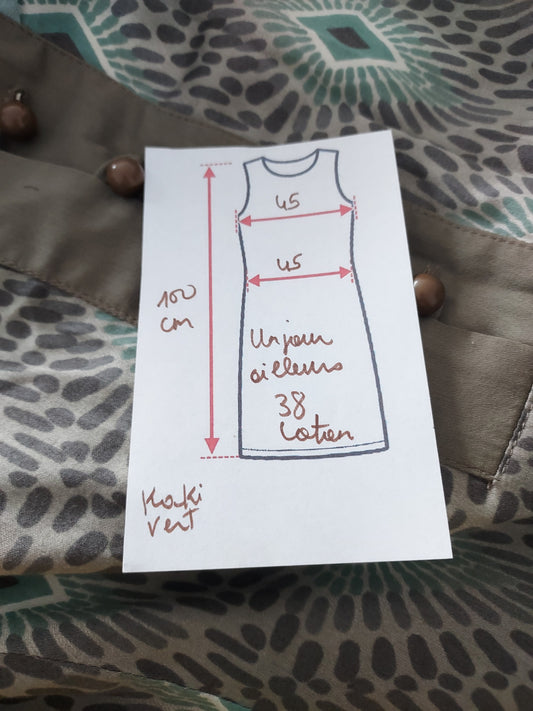 45
45
100
cm
Un jour
ailleurs
38
Coton
Kaki
vert